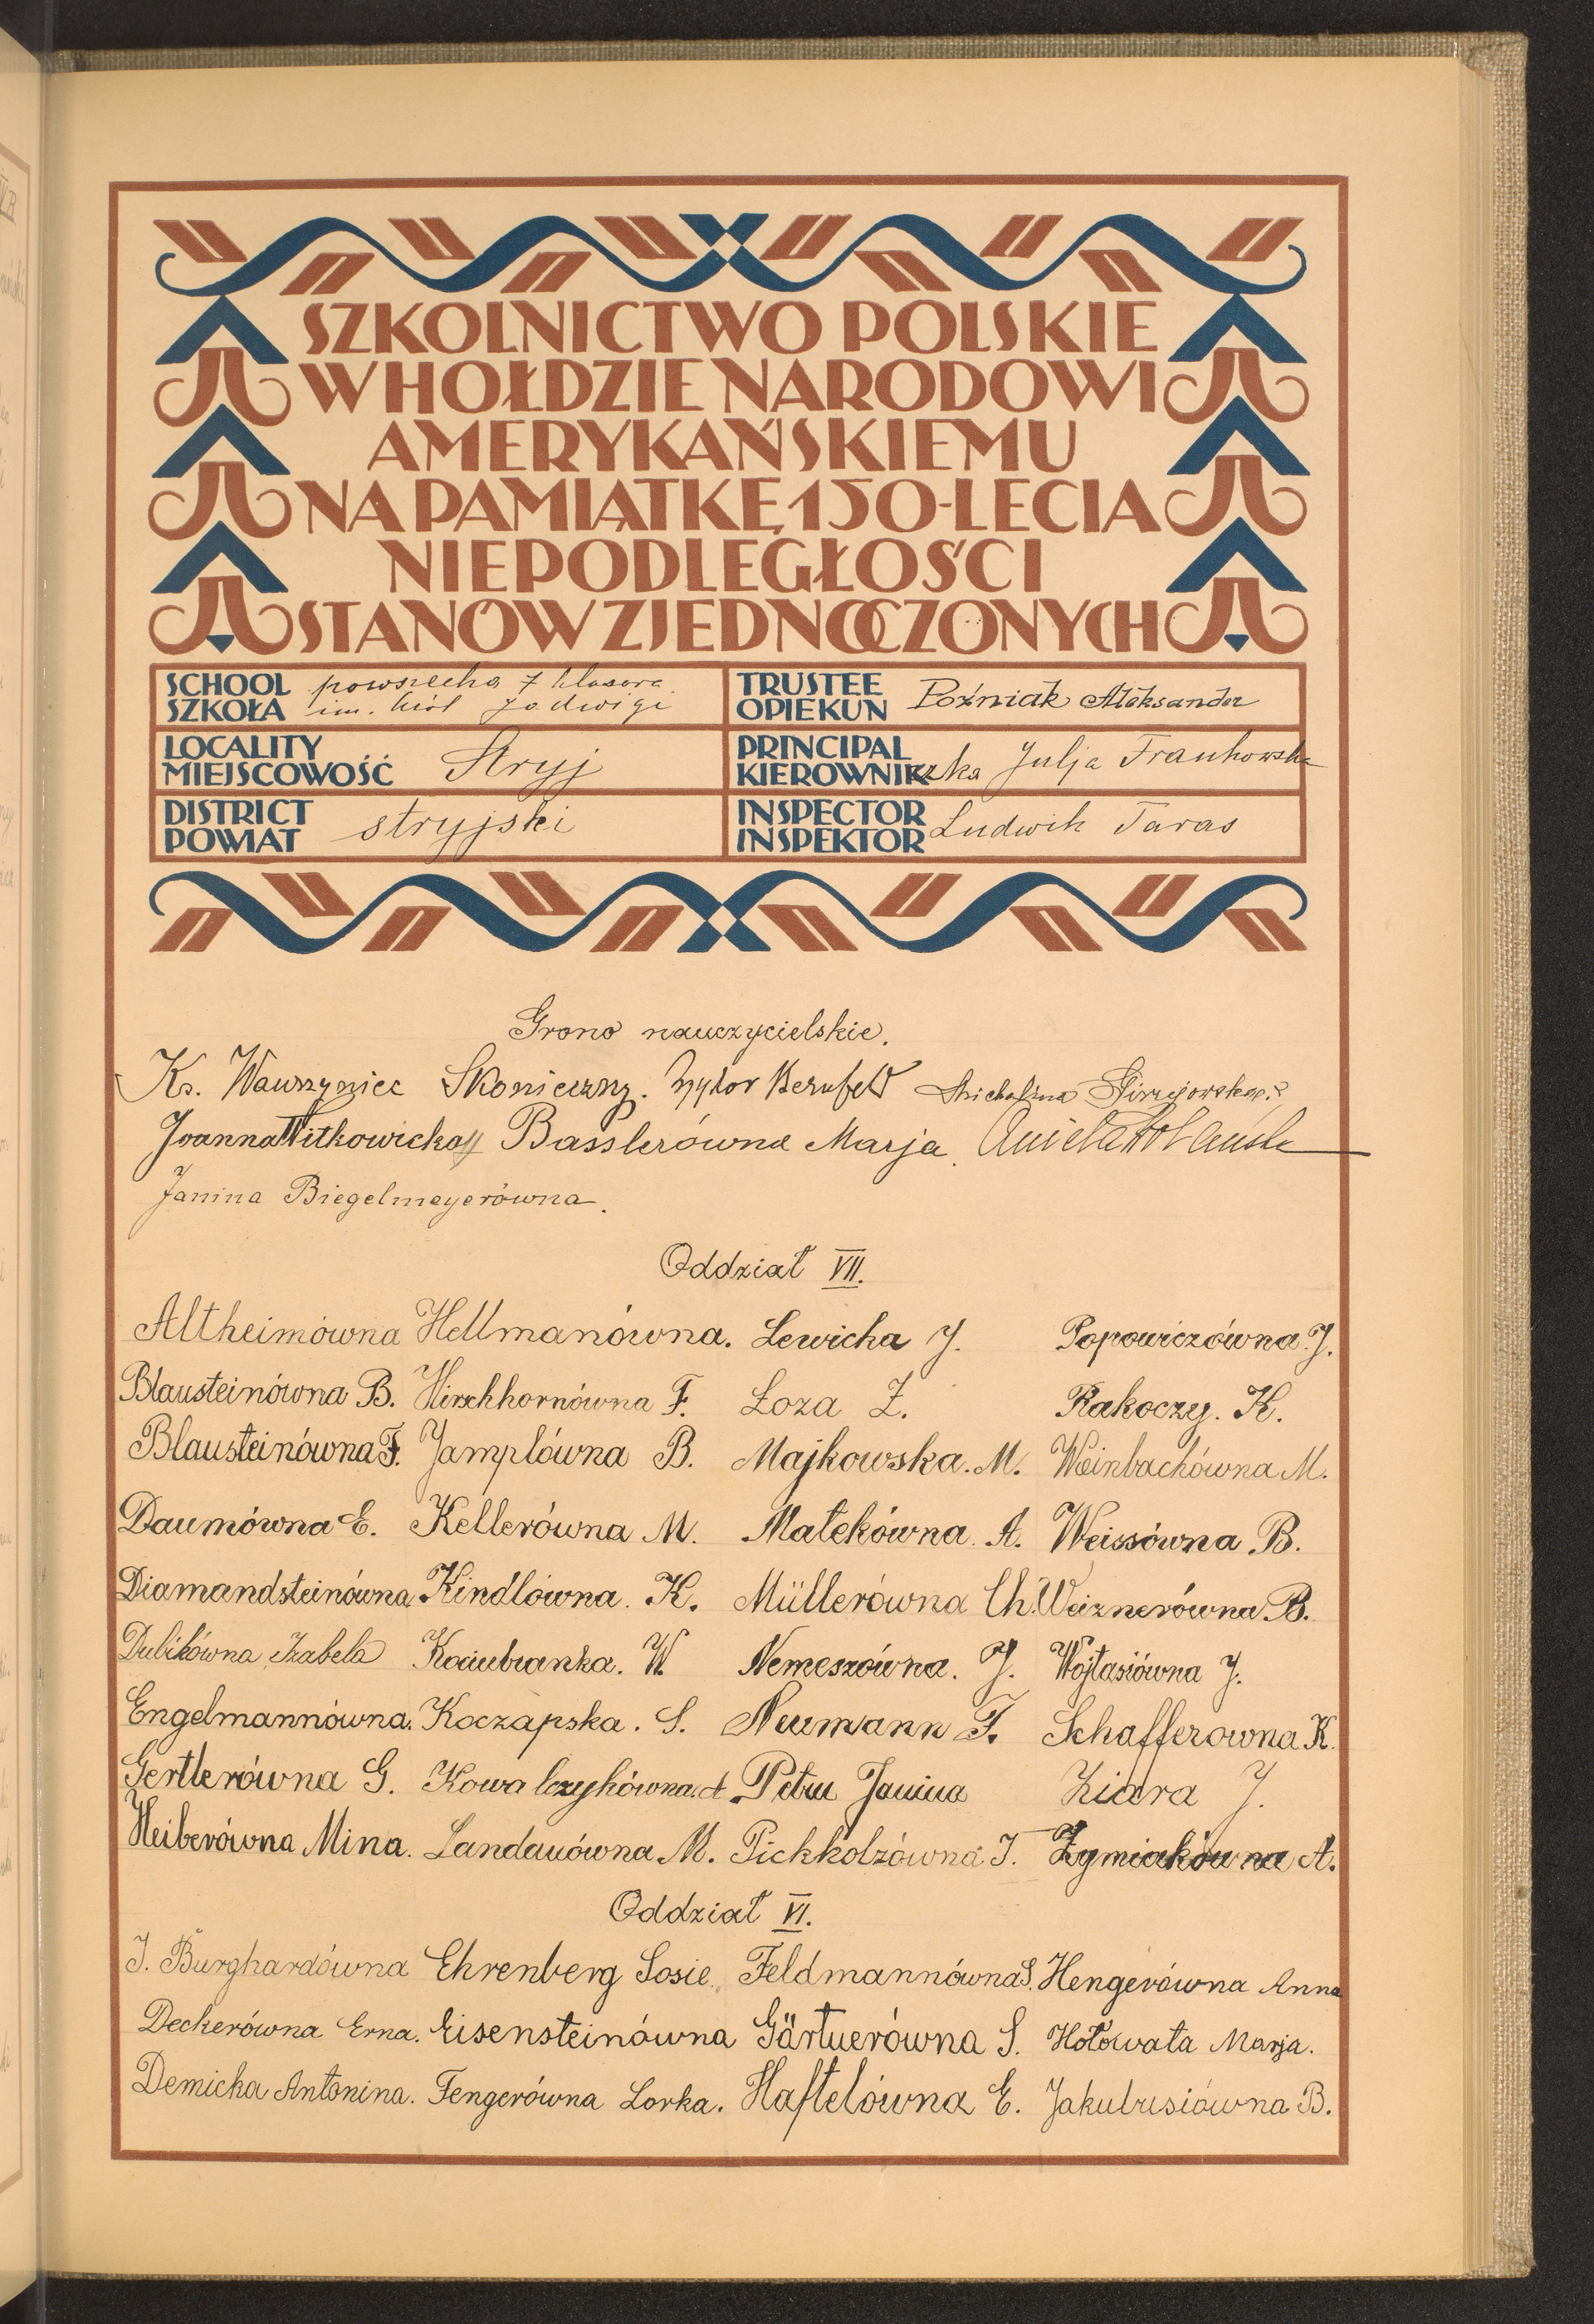 SZKOLNICTWO POLSKIE
W HOŁDZIE NARODOWI
AMERYKAŃSKIEMU
NA PAMIĄTKĘ 150-LECIA
NIEPODLEGŁOŚCI
STANÓW ZJEDNOCZONYCH
SCHOOL SZKOŁA powszecha 7 klasowa im. król Jadwigi
TRUSTEE OPIEKUN Poźniak Aleksander
LOCALITY MIEJSCOWOŚĆ Stryj
PRINCIPAL KIEROWNIKczka Julja Frankowska
DISTRICT POWIAT stryjski
INSPECTOR INSPEKTOR Ludwik Taras
Grono nauczycielskie.
Ks. Wawrzyniec Skonieczny. Michalina
Joanna Witkowicka Basslerówna Marja. Aniela
Janina Biegelmeyerówna.
Oddział VII.
Altheimówna Hellmanówna. Lewicka J. Popowiczówna J.
Blausteinówna B. Hirschhornówna F. Łoza Z. Rakoczy. K.
Blausteinówna F. Jamplówna B. Majkowska. M. Weinbachówna M.
Daumówna E. Kellerówna M. Małekówna A. Weissówna B.
Diamandsteinówna Kindlówna. K. Müllerówna Ch. Weiznerówna B.
Dubikówna Izabela Kociubianka. W. Nemeszówna. J. Wojtasiówna J.
Engelmannówna. Koczapska. S. Neumann F. Schafferowna K.
Gertlerówna G. Kowalczykówna. A. Petru Janina Ziara J.
Heiberówna Mina. Landauówna M. Pickholzówna T. Zymiakówna A.
Oddział VI.
J. Burghardówna Ehrenberg Sosie. Feldmannówna S. Hengerówna Anna
Deckerówna Erna. Eisensteinówna Gärtuerówna S. Hołowata Marja.
Demicka Antonina. Fengerówna Lorka. Haftelówna E. Jakubusiówna B.